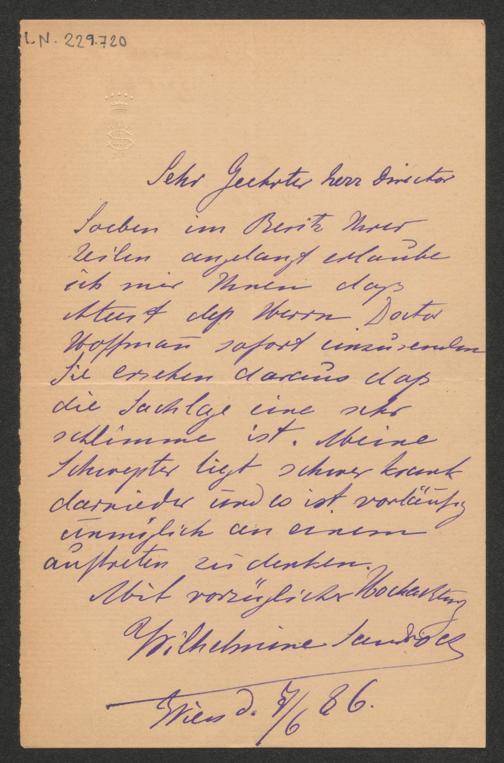 I.N. 229.720
Sehr Geehrter Herr Director
Soeben im Besitz Ihrer
Zeilen angelangt erlaube
ich mir Ihnen daß
Atest deß Herrn Doctor
Hoffmann sofort einzusenden
Sie ersehen daraus daß
die Sachlage eine sehr
schlimme ist. Meine
Schwester ligt schwer krank
darnieder und es ist vorläufig
unmöglich an einem
auftreten zu denken.
Mit vorzüglicher Hochachtung
Wilhelmine Sandrock
Wien d. 7/6 86.